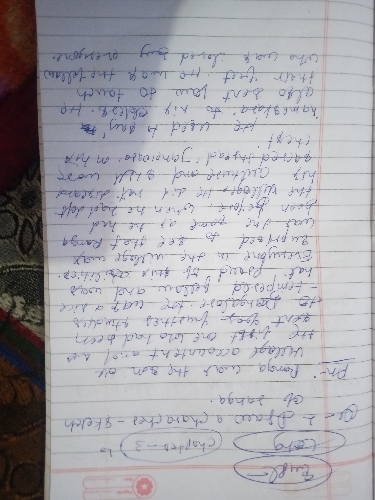 Engl-
Chapter - 3
Qu - 1 Draw a character - sketch
of ranga.
Ans: Ranga was the son of
village accountant and was
the first one who had been
sent for further studies
to Bangalore. He was a nice
- tempered fellow and was
not proud of this abilities.
Everyone in the village was
surprised to see that Ranga
was the same as he had
been before when he had left
the village. He did not discard
his culture and still wore
sacred thread 'Janewara' in his
chest.
He used to pay
'namaskara' to his elders. He
also bent low to touch
their feet. He was the fellow
who was loved by everyone.